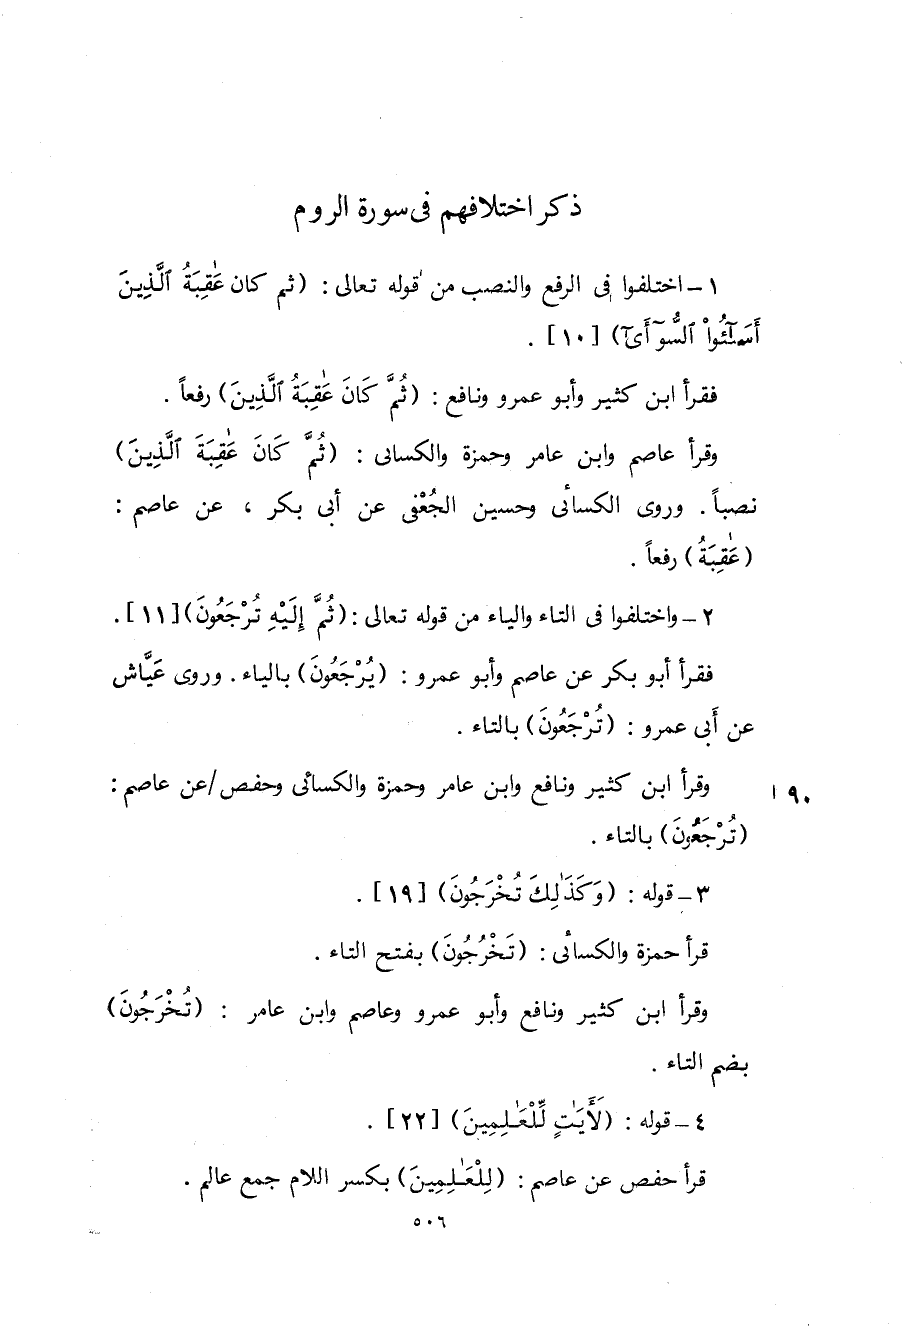 ذكر اختلافهم فى سورة الروم
١ – اختلفوا فى الرفع والنصب من قوله تعالى : (ثم كان عَٰقِبَةُ ٱلَّذِينَ
أَسَـٰٓـُٔوا۟ ٱلسُّوٓأَىٰٓ) [١٠] .
فقرأ ابن كثير وأبو عمرو ونافع : (ثُمَّ كَانَ عَٰقِبَةُ ٱلَّذِينَ) رفعاً .
وقرأ عاصم وابن عامر وحمزة والكسائى : (ثُمَّ كَانَ عَٰقِبَةَ ٱلَّذِينَ)
نصباً . وروى الكسائى وحسين الجُعْفى عن أبى بكر ، عن عاصم :
(عَٰقِبَةُ) رفعاً .
٢ – واختلفوا فى التاء والياء من قوله تعالى : (ثُمَّ إِلَيْهِ تُرْجَعُونَ) [١١] .
فقرأ أبو بكر عن عاصم وأبو عمرو : (يُرْجَعُونَ) بالياء . وروى عَيَّاش
عن أبى عمرو : (تُرْجَعُونَ) بالتاء .
وقرأ ابن كثير ونافع وابن عامر وحمزة والكسائى وحفص/عن عاصم : ٩٠ ا
(تُرْجَعُونَ) بالتاء .
٣ – قوله : (وَكَذَٰلِكَ تُخْرَجُونَ) [١٩] .
قرأ حمزة والكسائى : (تَخْرُجُونَ) بفتح التاء .
وقرأ ابن كثير ونافع وأبو عمرو وعاصم وابن عامر : (تُخْرَجُونَ)
بضم التاء .
٤ – قوله : (لَأَيَٰتٍ لِّلْعَـٰلِمِينَ) [٢٢] .
قرأ حفص عن عاصم : (لِلْعَـٰلِمِينَ) بكسر اللام جمع عالم .
٥٠٦